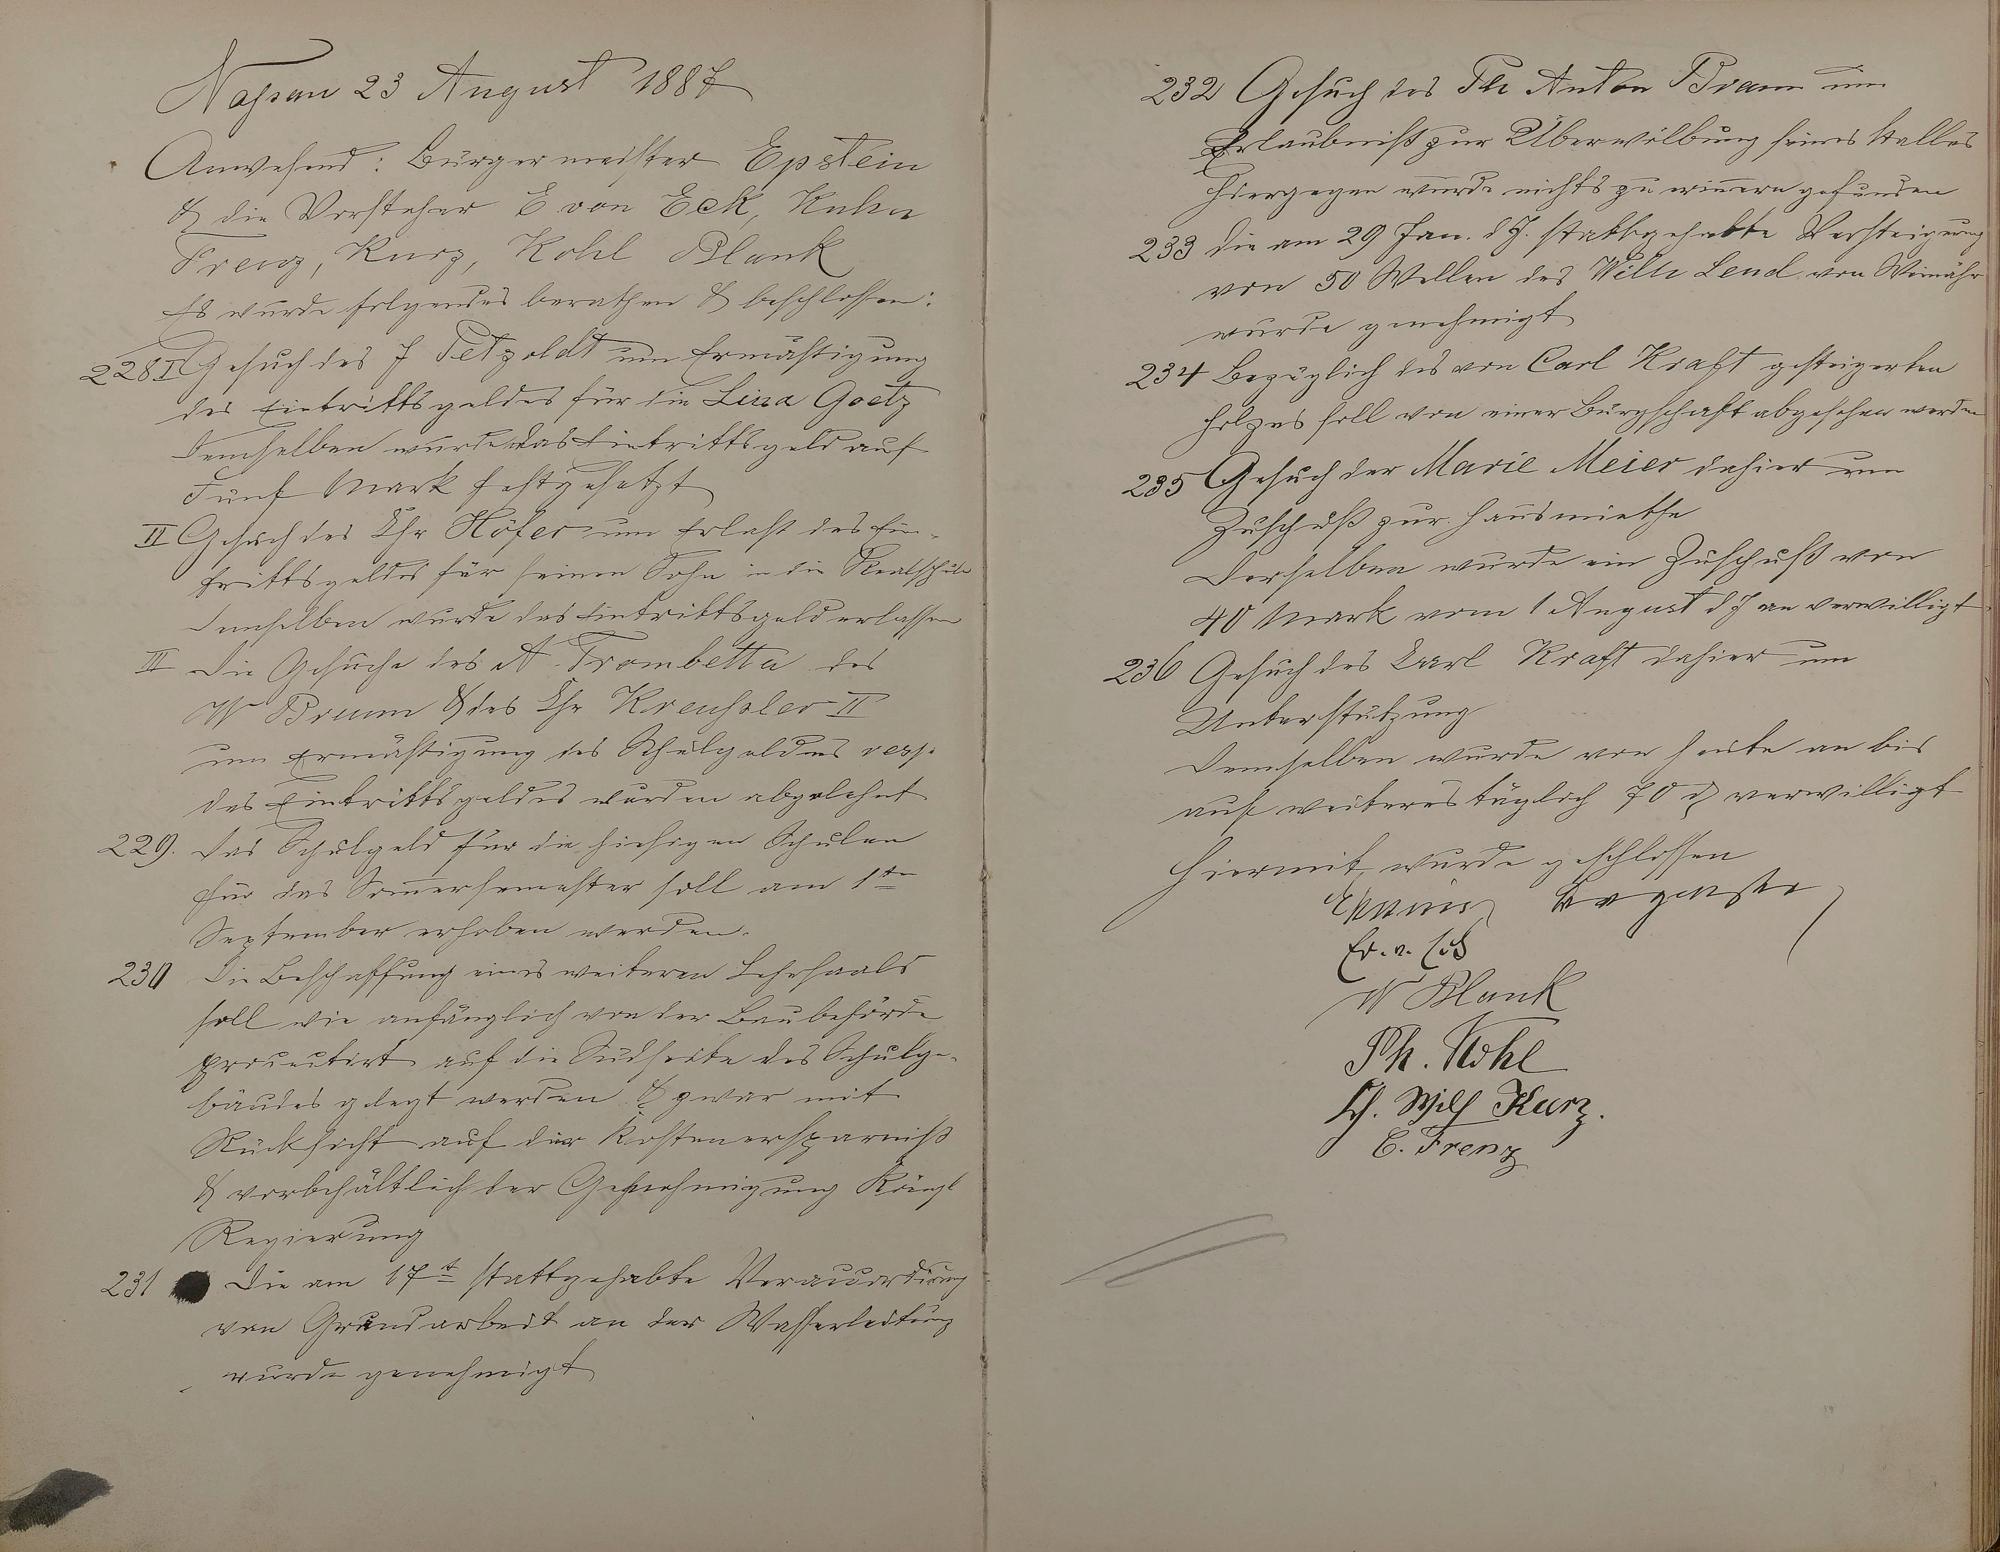 Nassau 23 August 1887
Anwesend: Bürgermeister Epstein
& die Vorsteher E von Eck, Kuhn
Frenz, Kurz, Kohl Blank
Es wurde folgendes berathen & beschlossen:
228 I Gesuch des J Petzoldt um Ermäßigung
des Eintrittsgeldes für die Lina Goetz
Demselben wurde das Eintrittsgeld auf
Fünf Mark festgesetzt
II Gesuch des Chr Höfer um Erlaß des Ein-
trittsgeldes für seinen Sohn in die Realschule
Demselben wurde das Eintrittsgeld erlassen
III Die Gesuche des A. Trombetta des
W Bruun & des Chr Kreussler II
um Ermäßigung des Schulgeldes resp.
des Eintrittsgeldes wurden abgelehnt
229. Das Schulgeld für die hiesigen Schulen
für das Sommersemester soll am 1ten
September erhoben werden.
230 Die Beschaffung eines weiteren Lehrsaals
soll wie anfänglich von der Baubehörde
projectirt auf die Südseite des Schulge-
bäudes gelegt werden & zwar mit
Rücksicht auf die Kostenersparniß
& vorbehältlich der Genehmigung Königl
Regierung
231 Die am 17t stattgehabte Veraccordirung
von Grundarbeit an der Wasserleitung
wurde genehmigt
232 Gesuch des Ph Anton Braun um
Erlaubniß zur Überwölbung seines Stalles
Hiergegen wurde nichts zu erinnern gefunden
233 Die am 29 Jan. d J. stattgehabte Versteigerung
von 50 Wellen des Wilh Lend von Weinähr
wurde genehmigt
234 Bezüglich des von Carl Kraft gesteigerten
Holzes soll von einer Bürgschaft abgesehen werden
235 Gesuch der Marie Meier dahier um
Zuschuß zur Hausmiethe
Derselben wurde ein Zuschuß von
40 Mark vom 1 August d J an verwilligt
236 Gesuch des Carl Kraft dahier um
Unterstützung
Demselben wurde von heute an bis
auf weiteres täglich 70 ₰ verwilligt
Hiermit wurde geschlossen
Epstein Bürgermstr
Ed. v. Eck
W Blank
Ph. Kohl
Ch. Wilh Kurz.
C. Frenz